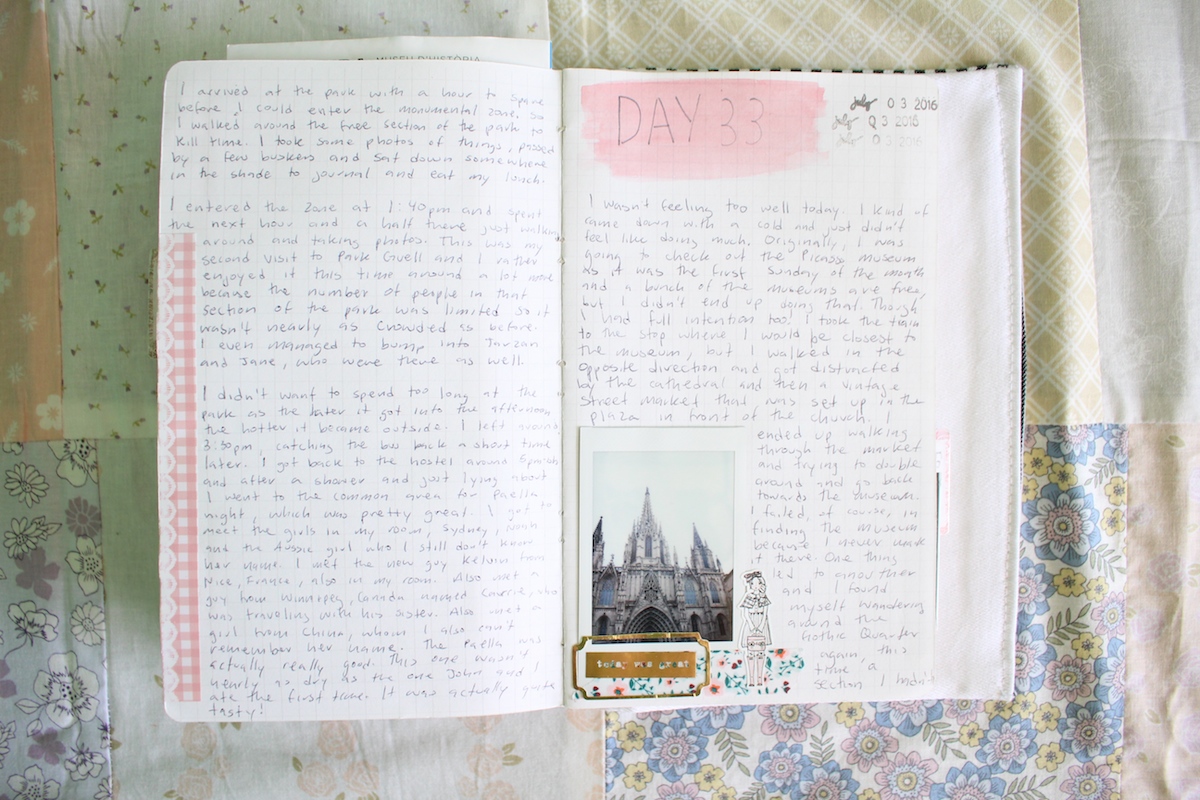 MUSEU D'HISTÒRIA
I arrived at the park with a hour to spare
before I could enter the monumental zone. So
I walked around the free section of the park to
kill time. I took some photos of things, passed
by a few buskers and sat down somewhere
in the shade to journal and eat my lunch.
I entered the zone at 1:40pm and spent
the next hour and a half there just walking
around and taking photos. This was my
second visit to Park Guell and I rather
enjoyed it this time around a lot more
because the number of people in that
section of the park was limited so it
wasn't nearly as crowded as before.
I even managed to bump into Tarzan
and Jane, who were there as well.
I didn't want to spend too long at the
park as the later it got into the afternoon
the hotter it became outside. I left around
3:30pm, catching the bus back a short time
later. I got back to the hostel around 5pm ish
and after a shower and just lying about
I went to the common area for Paella
night, which was pretty great. I got to
meet the girls in my room, Sydney,
and the Aussie girl who I still don't know
her name. I met the new guy Kelvin from
Nice, France, also in my room. Also met a
guy from Winnipeg, Canada named who
was traveling with his sister. Also met a
girl from China, whom I also can't
remember her name. The Paella was
actually really good. This one wasn't
nearly as dry as the one John and I
ate the first time. It was actually quite
tasty!
DAY 33
July 03 2016
July 03 2016
July 03 2016
I wasn't feeling too well today. I kind of
came down with a cold and just didn't
feel like doing much. Originally, I was
going to check out the Picasso museum
as it was the first Sunday of the month
and a bunch of the museums are free,
but I didn't end up doing that. Though
I had full intention too! I took the train
to the stop where I would be closest to
the museum, but I walked in the
opposite direction and got distracted
by the cathedral and then a vintage
street market that was set up in the
plaza in front of the church. I
ended up walking
through the market
and trying to double
around and go back
towards the museum.
I failed, of course, in
finding the museum
because I never made
it there. One thing
led to another
and I found
myself wandering
around the
Gothic Quarter
again, this
time a
section I hadn't
today was great